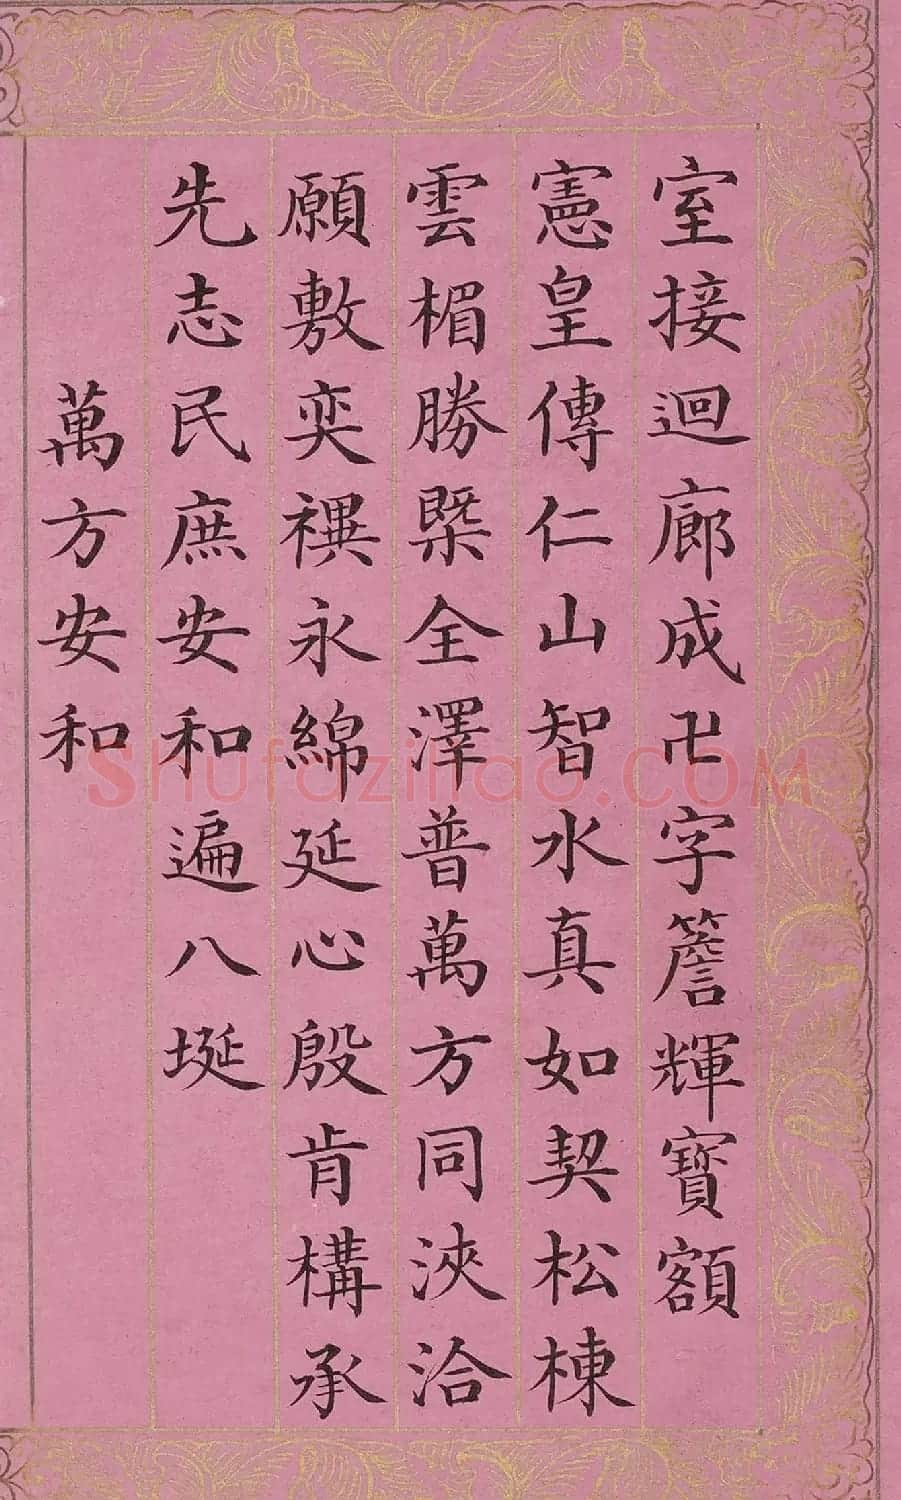 室接迴廊成卍字簷輝寶額
憲皇傳仁山智水真如契松棟
雲楣勝槩全澤普萬方同浹洽
願敷奕禩永綿延心殷肯構承
先志民庶安和遍八埏
萬方安和
Shufaziliao.COM